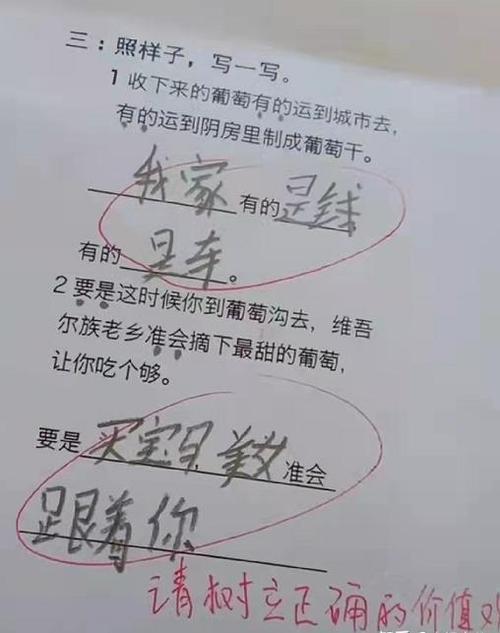 三：照样子，写一写。
1 收下来的葡萄有的运到城市去，
有的运到阴房里制成葡萄干。
我家有的是钱
有的是车。
2 要是这时候你到葡萄沟去，维吾
尔族老乡准会摘下最甜的葡萄，
让你吃个够。
要是买宝马，美女准会
跟着你
请树立正确的价值观